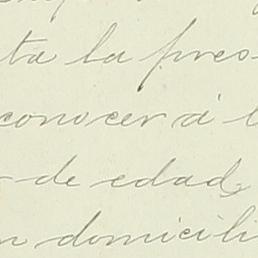 ta la pres-
conocer á l
- de edad,
n domicili